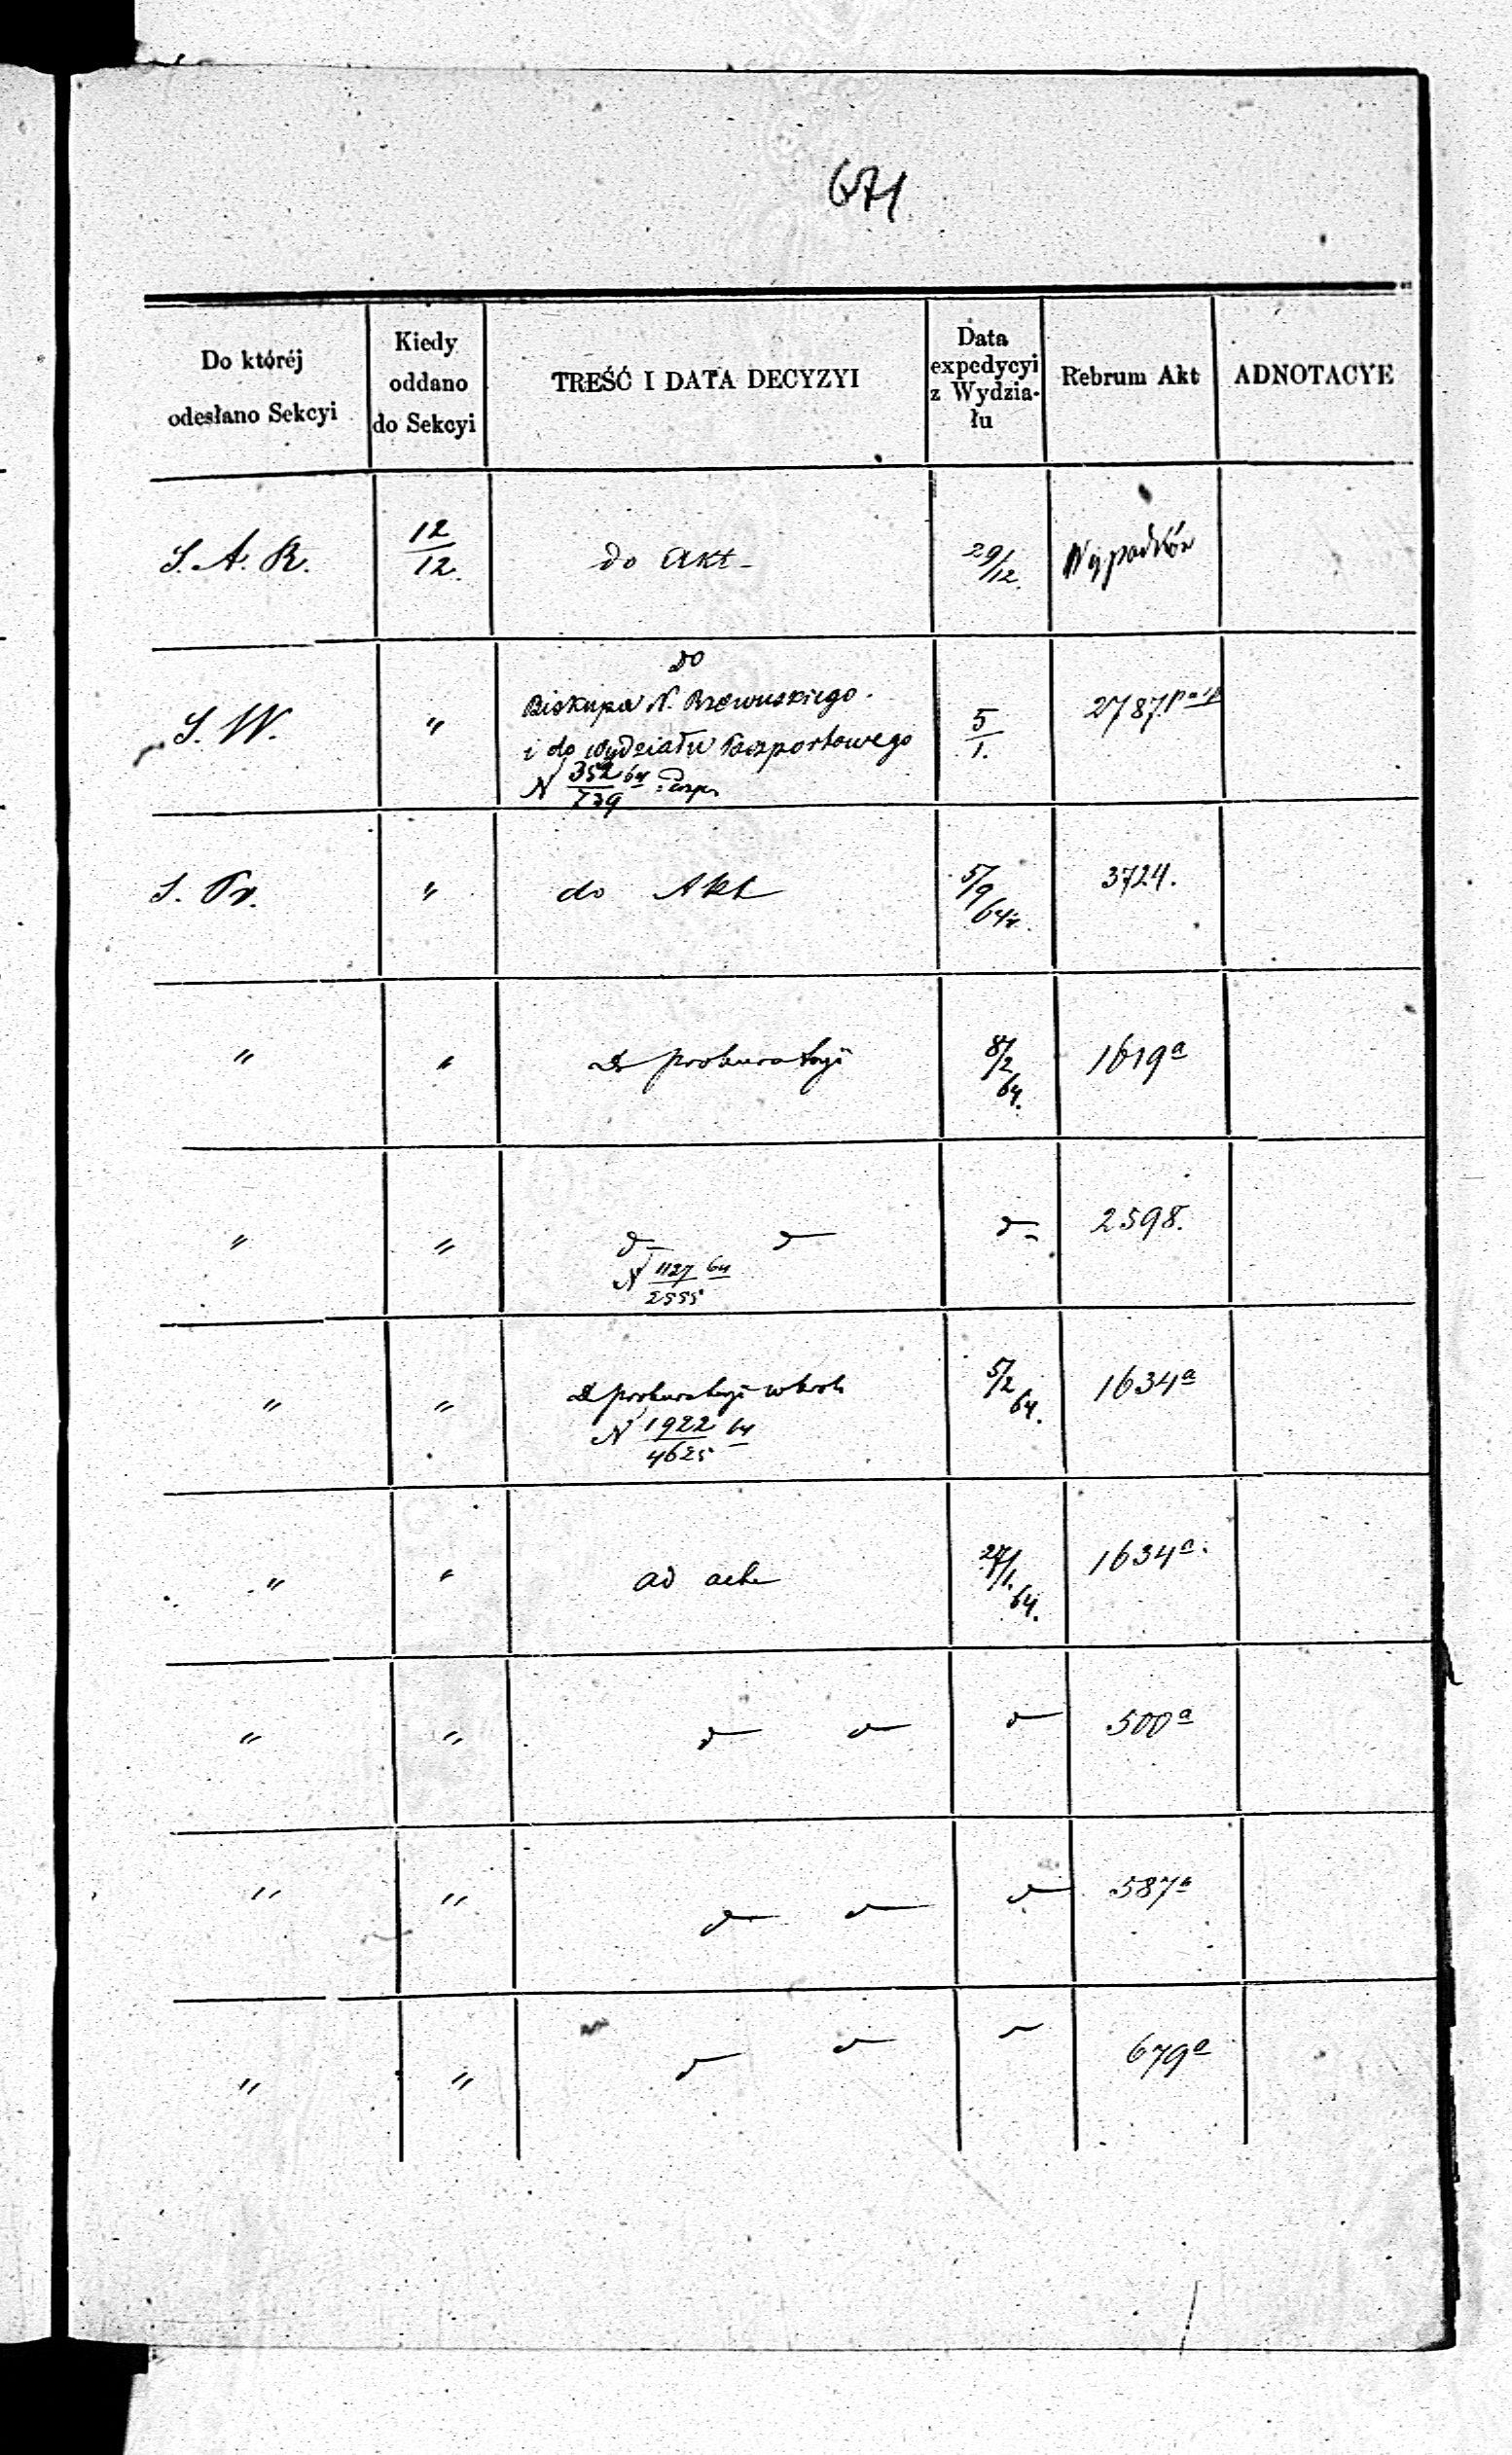 671
Do któréj odesłano Sekcyi
Kiedy oddano do Sekcyi
TREŚĆ I DATA DECYZYI
Data expedycyi z Wydzia- łu
Rebrum Akt
ADNOTACYE
S. A. R.
12/12.
do Akt -
29/12.
Wypadków
S. W.
"
do
Biskupa N. Rzewuskiego.
i do Wydziału Paszportowego
N 352/739 64
5/1.
2787.
S. Pr.
"
do Akt
5/9 64r.
3724.
"
"
Do prokuratoryi
8/2 64.
1619a
"
"
d- d-
N 1127/2555 64
d-
2598.
"
"
Do prokuratoryi
N 1922/4625 64
5/2 64.
1634a
"
"
ad acta
27/1. 64.
1634a.
"
"
d- d-
d-
500a
"
"
d- d-
d-
587a
"
"
d- d-
679a